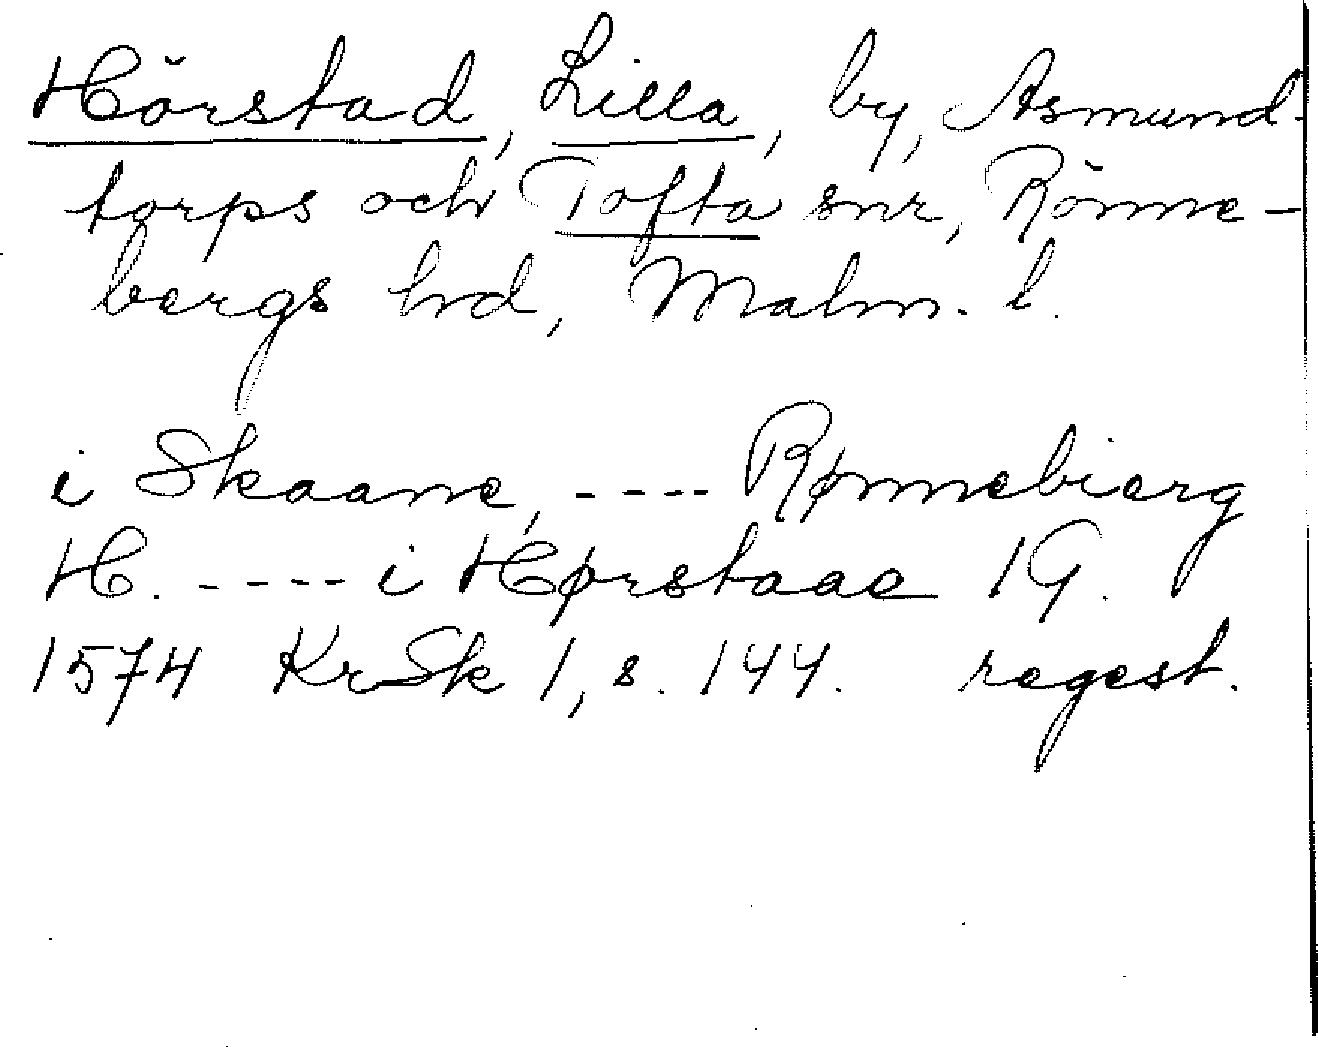 Hörstad, Lilla, by, Asmund-
torps och Tofta snr, Rönne-
bergs hd, Malm. l.
i Skaane, ---- Rønnebierg
H. ---- i Hørstaae 1G.
1574 KrSk 1, s. 144. regest.